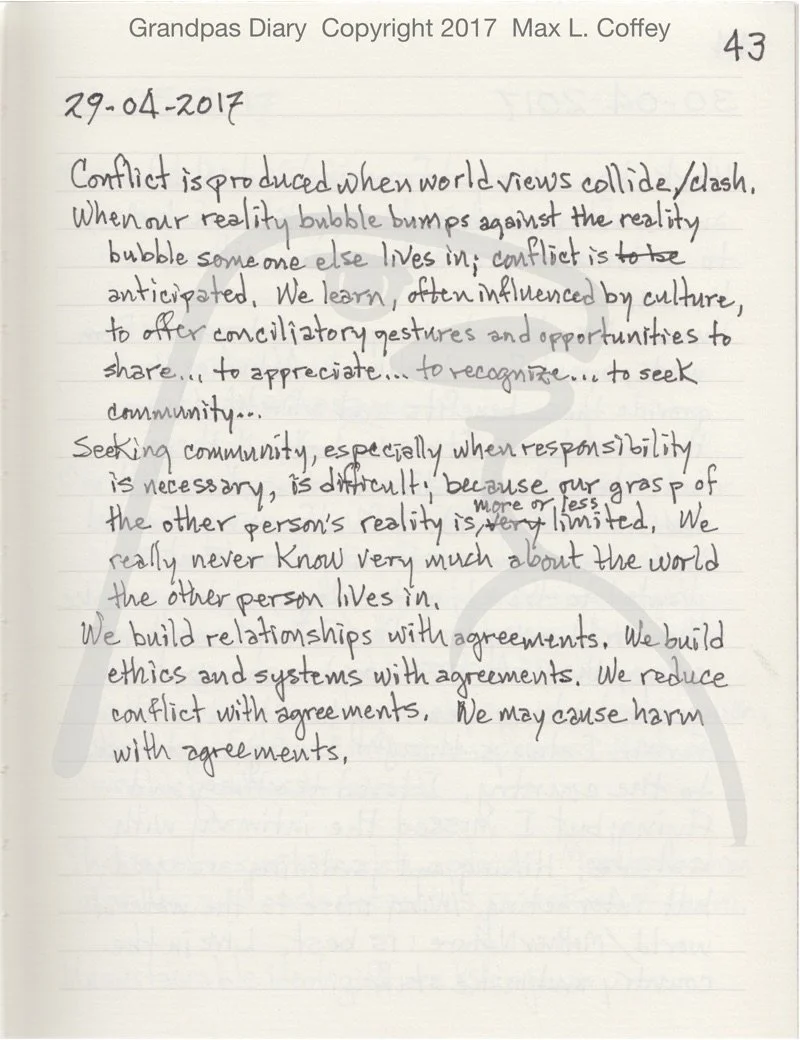 Grandpas Diary Copyright 2017 Max L. Coffey
43
29-04-2017
Conflict is produced when world views collide/clash.
When our reality bubble bumps against the reality
bubble someone else lives in; conflict is to be
anticipated. We learn, often influenced by culture,
to offer conciliatory gestures and opportunities to
share... to appreciate... to recognize... to seek
community...
Seeking community, especially when responsibility
is necessary, is difficult; because our grasp of
more or less
the other person's reality is very limited. We
really never know very much about the world
the other person lives in.
We build relationships with agreements. We build
ethics and systems with agreements. We reduce
conflict with agreements. We may cause harm
with agreements.